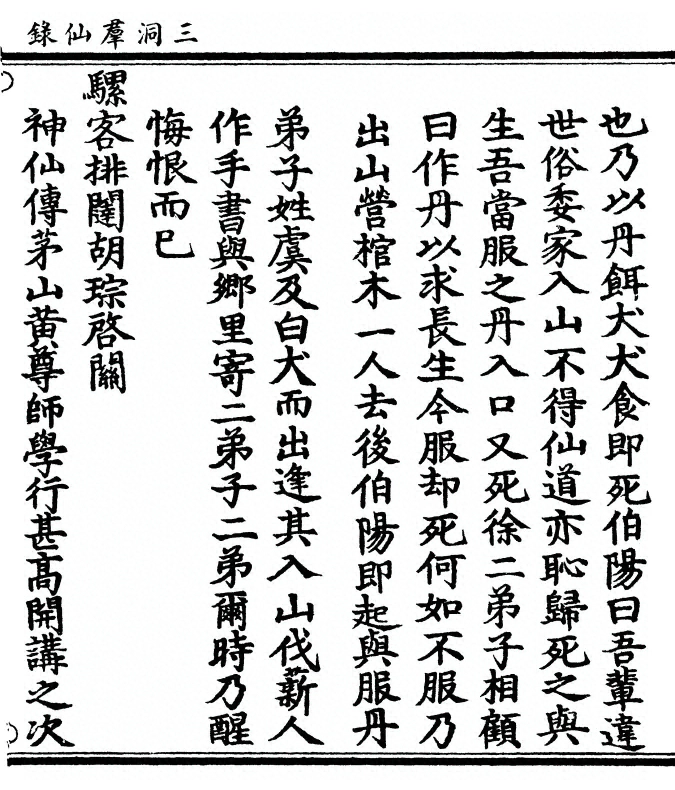 三洞羣仙錄
也乃以丹餌犬犬食即死伯陽曰吾輩違
世俗委家入山不得仙道亦恥歸死之與
生吾當服之丹入口又死徐二弟子相顧
曰作丹以求長生今服却死何如不服乃
出山營棺木一人去後伯陽即起與服丹
弟子姓虞及白犬而出逢其入山伐薪人
作手書與鄉里寄二弟子二弟爾時乃醒
悔恨而已
騾客排闥胡琮啓關
神仙傳茅山黃尊師學行甚高開講之次